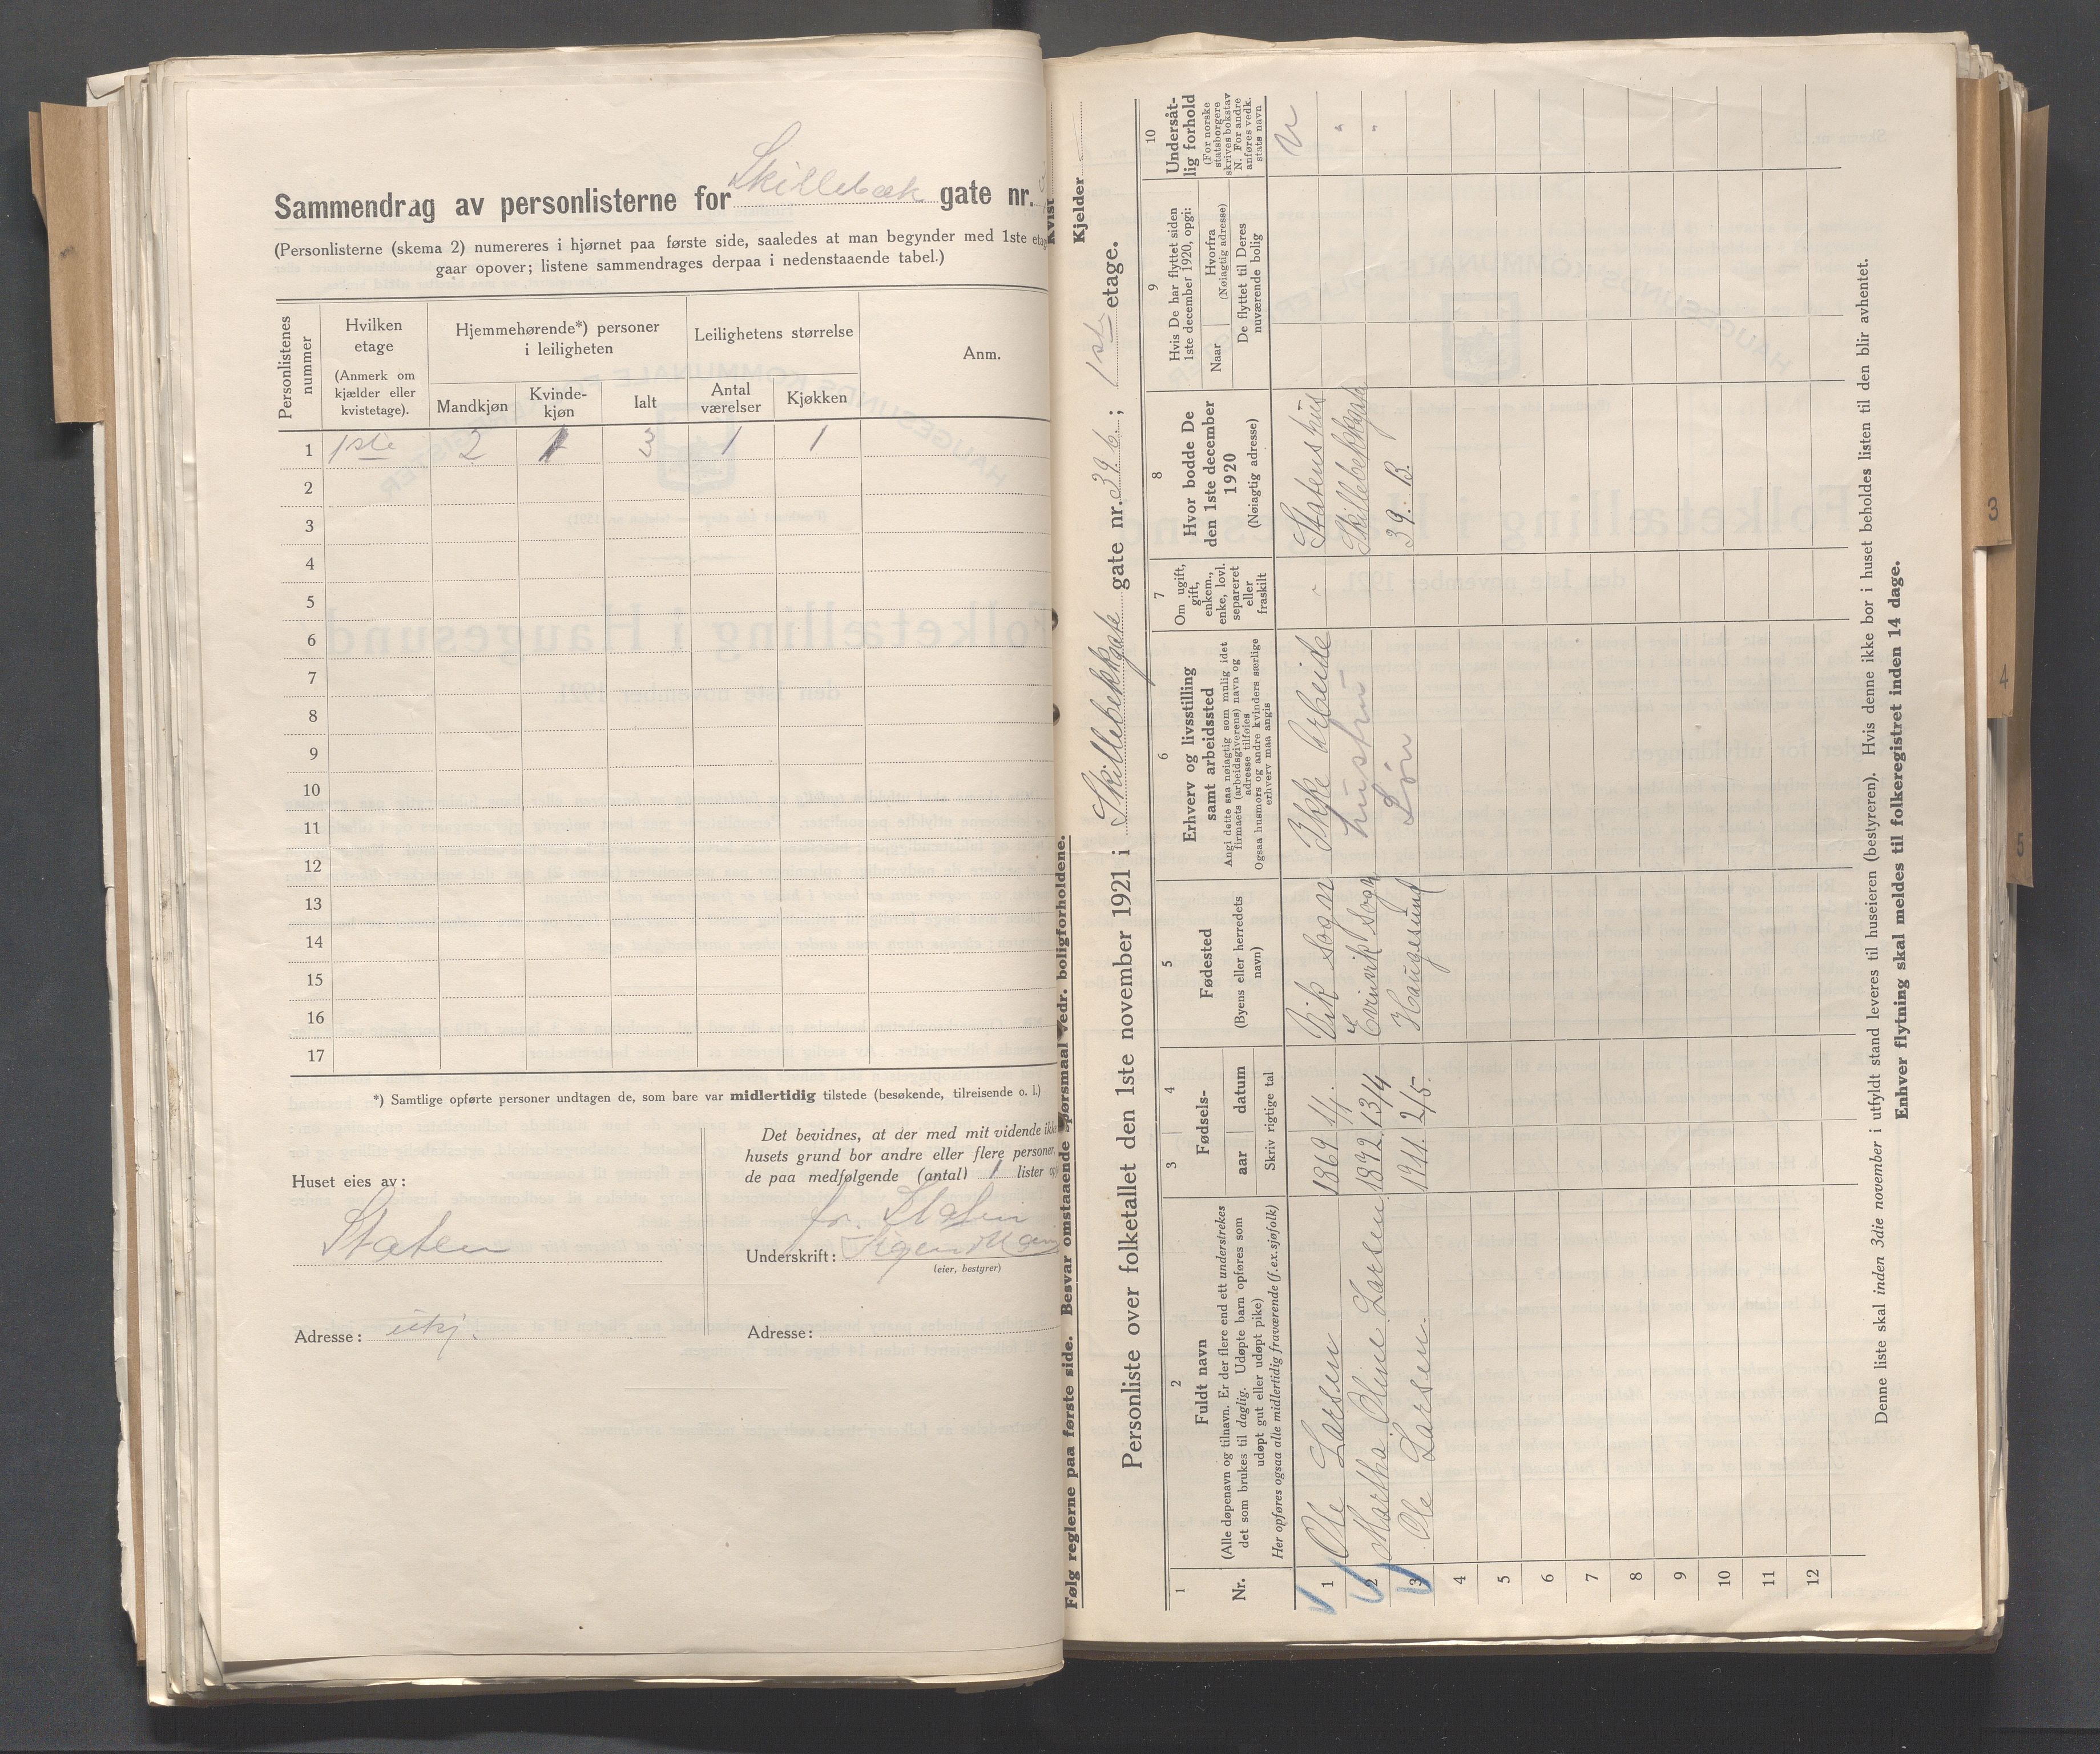 Sammendrag av personlisterne for Skillebæk gate nr.
(Personlisterne (skema 2) numereres i hjørnet paa første side, saaledes at man begynder med 1ste
gaar opover; listene sammendrages derpaa i nedenstaaende tabel.)
Personlistenes nummer
Hvilken etage
(Anmerk om kjælder eller kvistetage).
Hjemmehørende*) personer i leiligheten
Mandkjøn
Kvinde-kjøn
Ialt
Leilighetens størrelse
Antal værelser
Kjøkken
Anm.
1 1ste 2 1 3 1 1
2
3
4
5
6
7
8
9
10
11
12
13
14
15
16
17
*) Samtlige opførte personer undtagen de, som bare var midlertidig tilstede (besøkende, tilreisende o. l.)
Huset eies av:
Staten
Adresse:
Det bevidnes, at der med mit vidende
husets grund bor andre eller flere personer,
de paa medfølgende (antal) 1 lister
for Staten
Underskrift:
(eier, bestyrer)
Adresse:
Følg reglerne paa første side. Besvar omstaaende spørsmaal vedr. boligforholdene.
Kvist
Kjelder
Personliste over folketallet den 1ste november 1921 i Skillebekkgate gate nr. 39 b. ; 1ste etage.
1
Nr.
2
Fuldt navn
(Alle døpenavn og tilnavn. Er der flere end ett understrekes
det som brukes til daglig. Udøpte barn opføres som
udøpt gut eller udøpt pike)
Her opføres ogsaa alle midlertidig fraværende (f.ex.sjøfolk)
3
4
Fødsels-
aar
datum
Skriv rigtige tal
5
Fødested
(Byens eller herredets navn)
6
Erhverv og livsstilling
samt arbeidssted
Angi dette saa nøiagtig som mulig idet
firmaets (arbeidsgiverens) navn og
adresse tilføies
Ogsaa husmors og andre kvinders særlige
erhverv maa angis
7
Om ugift,
gift,
enkem.,
enke, lovl.
separeret
eller
fraskilt
8
Hvor bodde De
den 1ste december
1920
(Nøiagtig adresse)
9
Hvis De har flyttet siden
1ste december 1920, opgi:
Naar
Hvorfra
(Nøiagtig adresse)
De flyttet til Deres
nuværende bolig
10
Undersåt-
lig forhold
(For norske
statsborgere
skrives bokstav
N. For andre
anføres vedk.
stats navn
1 Ole Larsen 1869 1/1. Vik sogn Ikke Arbeide Statenshus N
2 Martha Oline Larsen 1872 13/4 Evinvik sogn hustru Skillebekkgate "
3 Ole Larsen. 1911. 2/5. Haugesund Sön 39. B. "
4
5
6
7
8
9
10
11
12
Denne liste skal inden 3die november i utfyldt stand leveres til huseieren (bestyreren). Hvis denne ikke bor i huset beholdes listen til den blir avhentet.
Enhver flytning skal meldes til folkeregistret inden 14 dage.
3
4
5